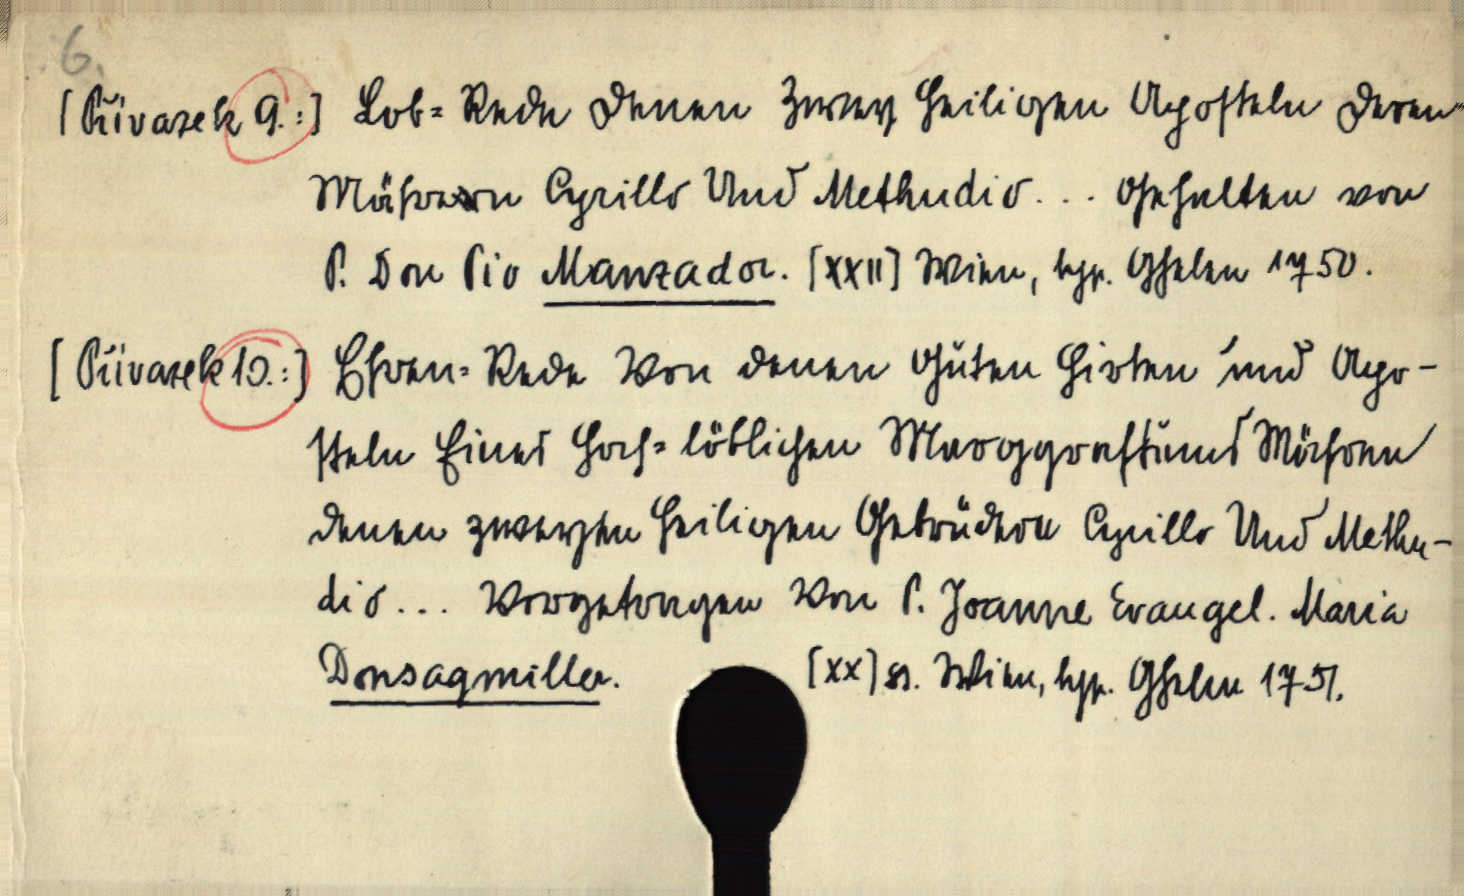 6.
[Přívazek 9.:] Lob= Rede Denen Zwey Heiligen Aposteln Deren
Mähren Cyrillo Und Methudio... Gehalten von
P. Don Pio Manzador. [XXII] Wien, typ. Ghelen 1750.
[Přívazek 10.:] Ehren= Rede Von denen Guten Hirten und Apo-
steln Eines Hoch= löblichen Marggraftums Mähren
denen zweyen Heiligen Gebrüdern Cyrillo Und Methu-
dio... Vorgetragen Von P. Joanne Evangel. Maria
Donsagmiller. [XX] s. Wien, typ. Ghelen 1751.